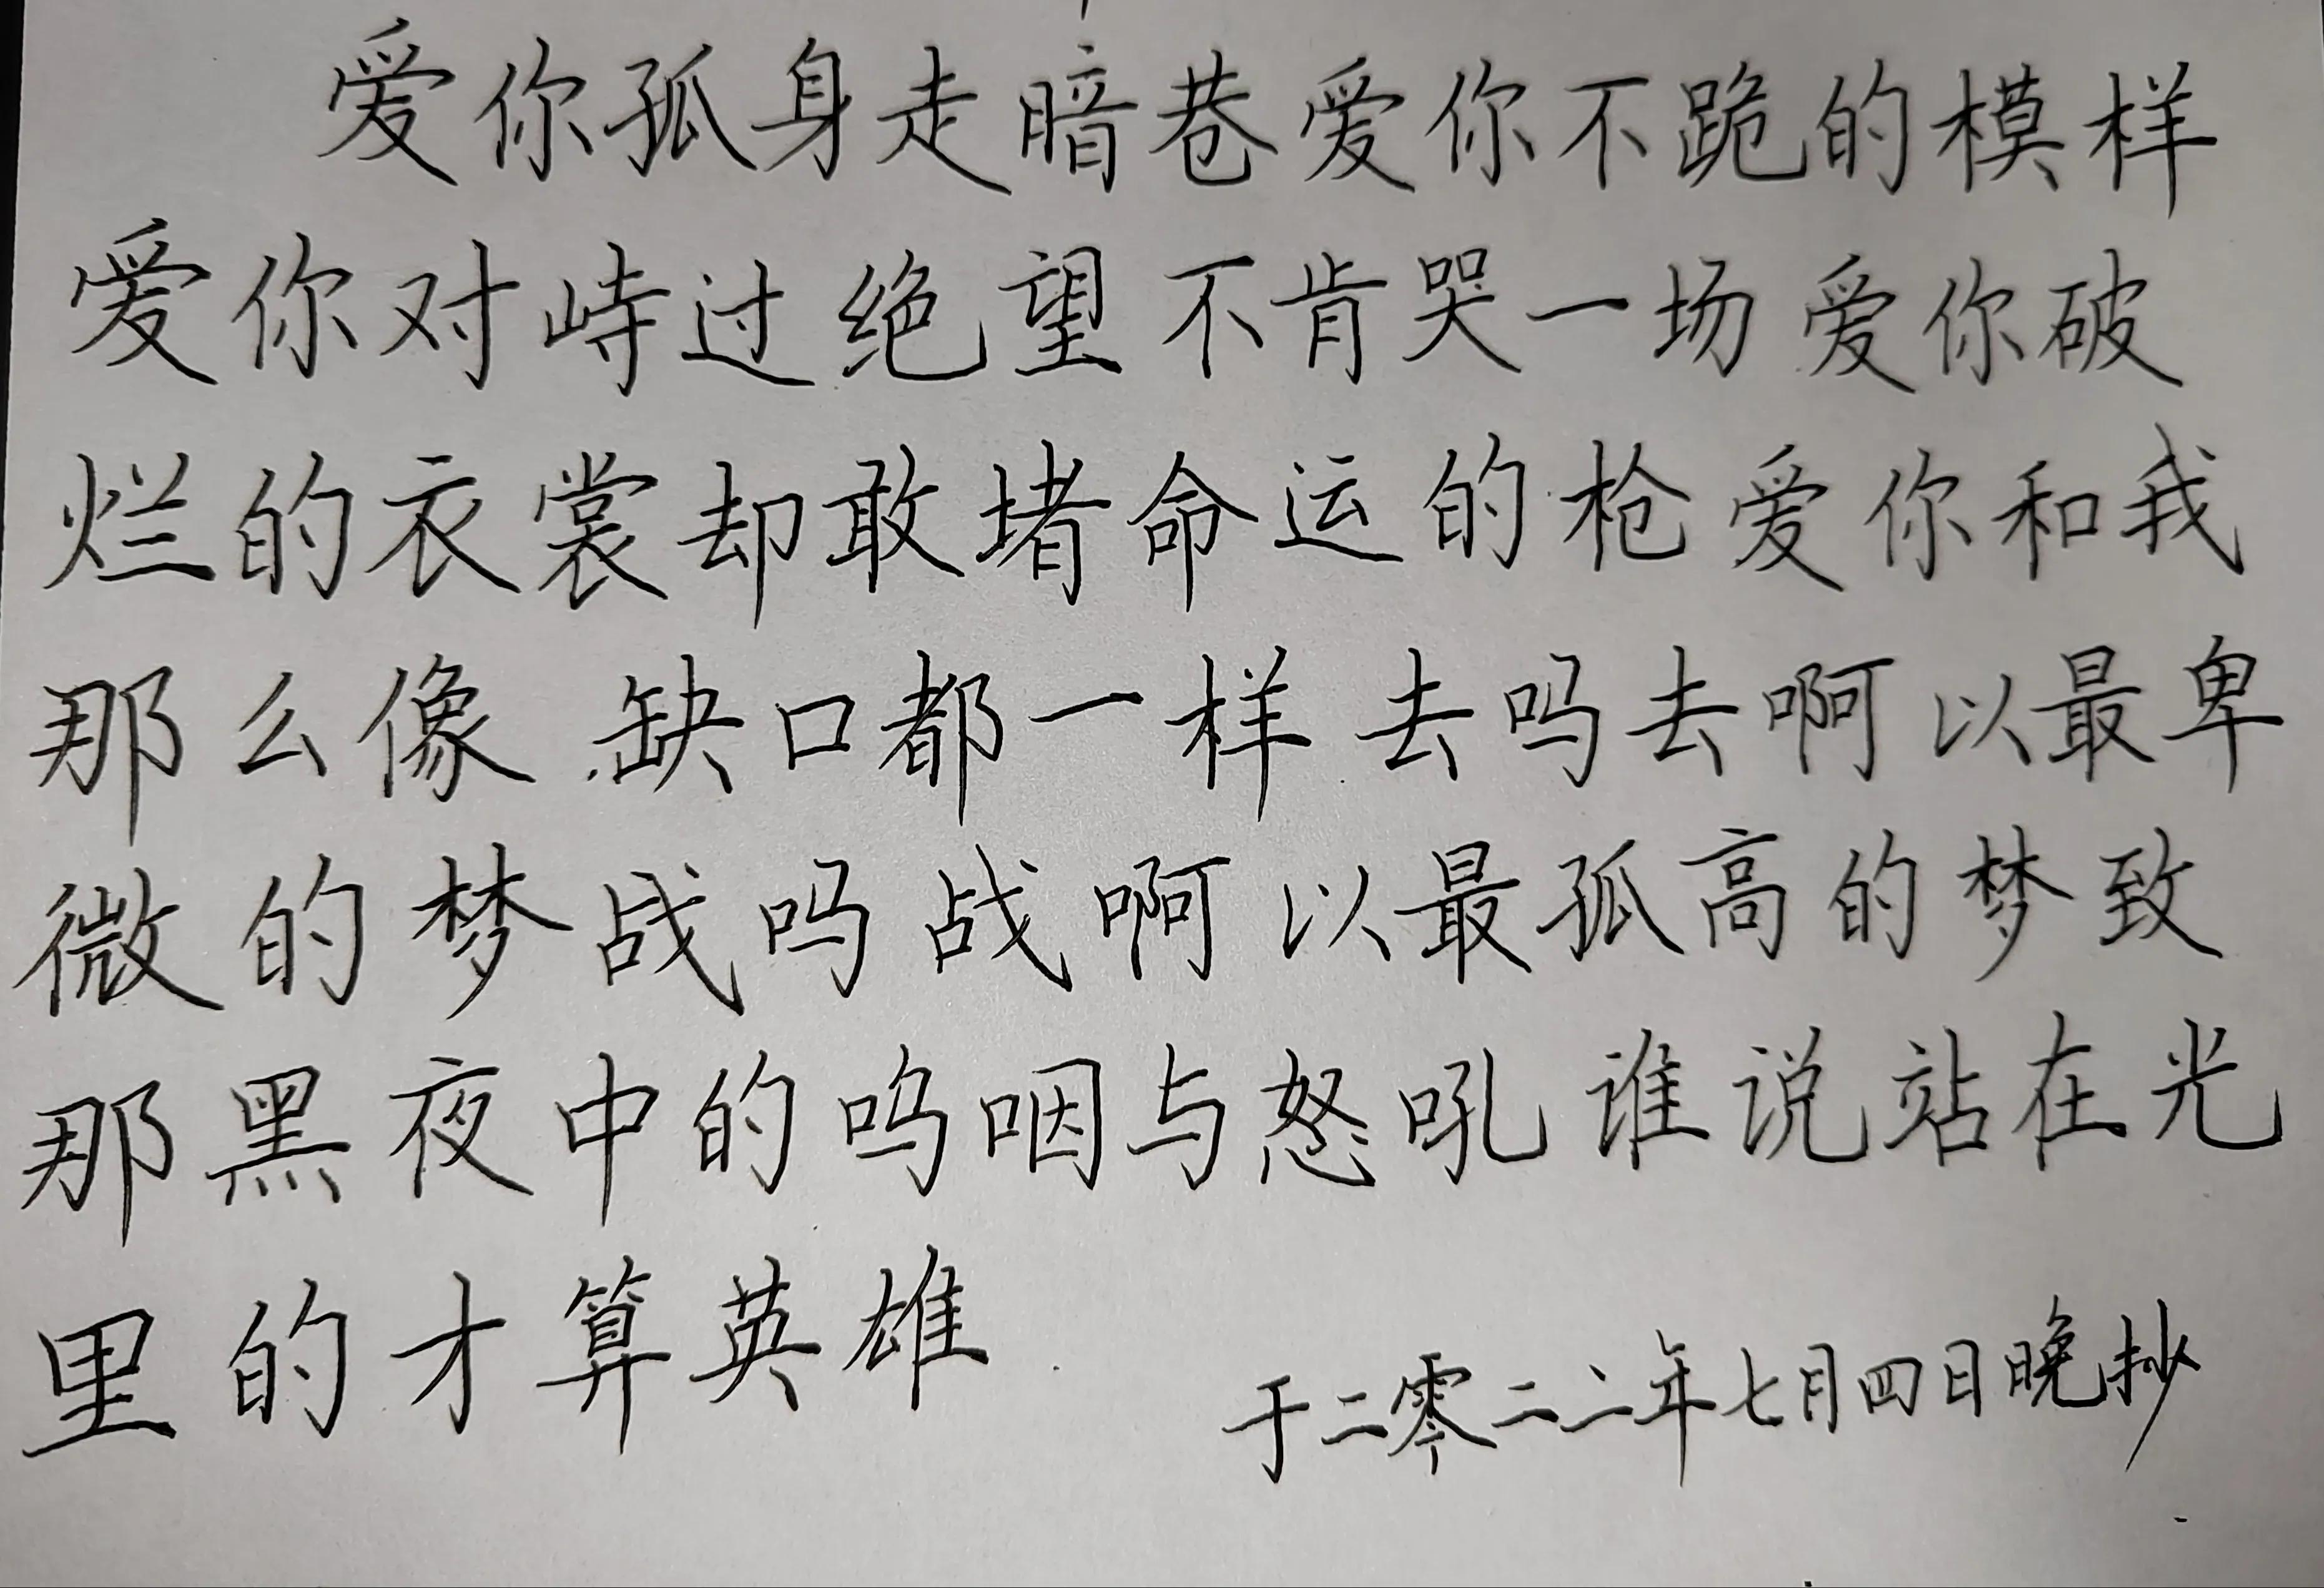 爱你孤身走暗巷爱你不跪的模样
爱你对峙过绝望不肯哭一场爱你破
烂的衣裳却敢堵命运的枪爱你和我
那么像 缺口都一样 去吗去啊以最卑
微的梦战吗战啊以最孤高的梦致
那黑夜中的呜咽与怒吼谁说站在光
里的才算英雄
于二零二二年七月四日晚抄